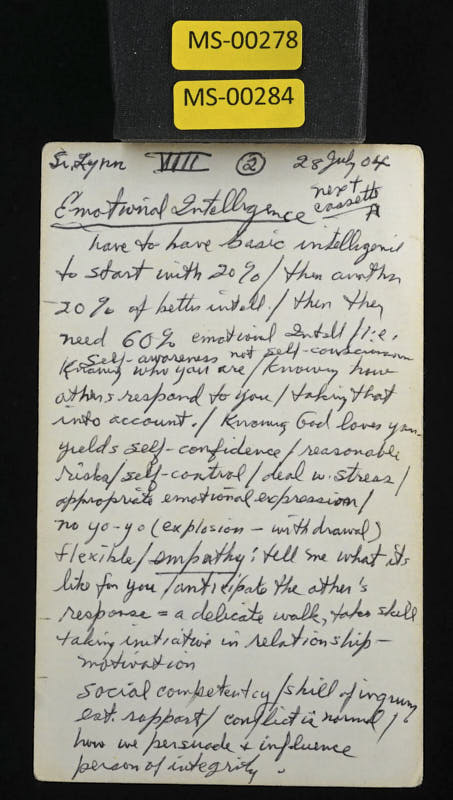 MS-00278
MS-00284
Sr. Lynn VIIII ② 28 July 04
next
cassette
A
Emotional Intelligence
have to have basic intelligence
to start with 20% / then another
20% of better intell. / then they
need 60% emotional Intell / i.e.
self-awareness not self-consciousness
Knowing who you are / Knowing how
others respond to you / taking that
into account. / Knowing God loves you
yields self-confidence / reasonable
risks / self-control / deal w. stress /
appropriate emotional expression /
no yo-yo (explosion - withdrawal)
flexible / empathy: tell me what it's
like for you / anticipate the other's
response = a delicate walk, takes skill
taking initiative in relationship -
motivation
social competency / skill of
est. rapport / conflict is normal /
how we persuade & influence
person of integrity.